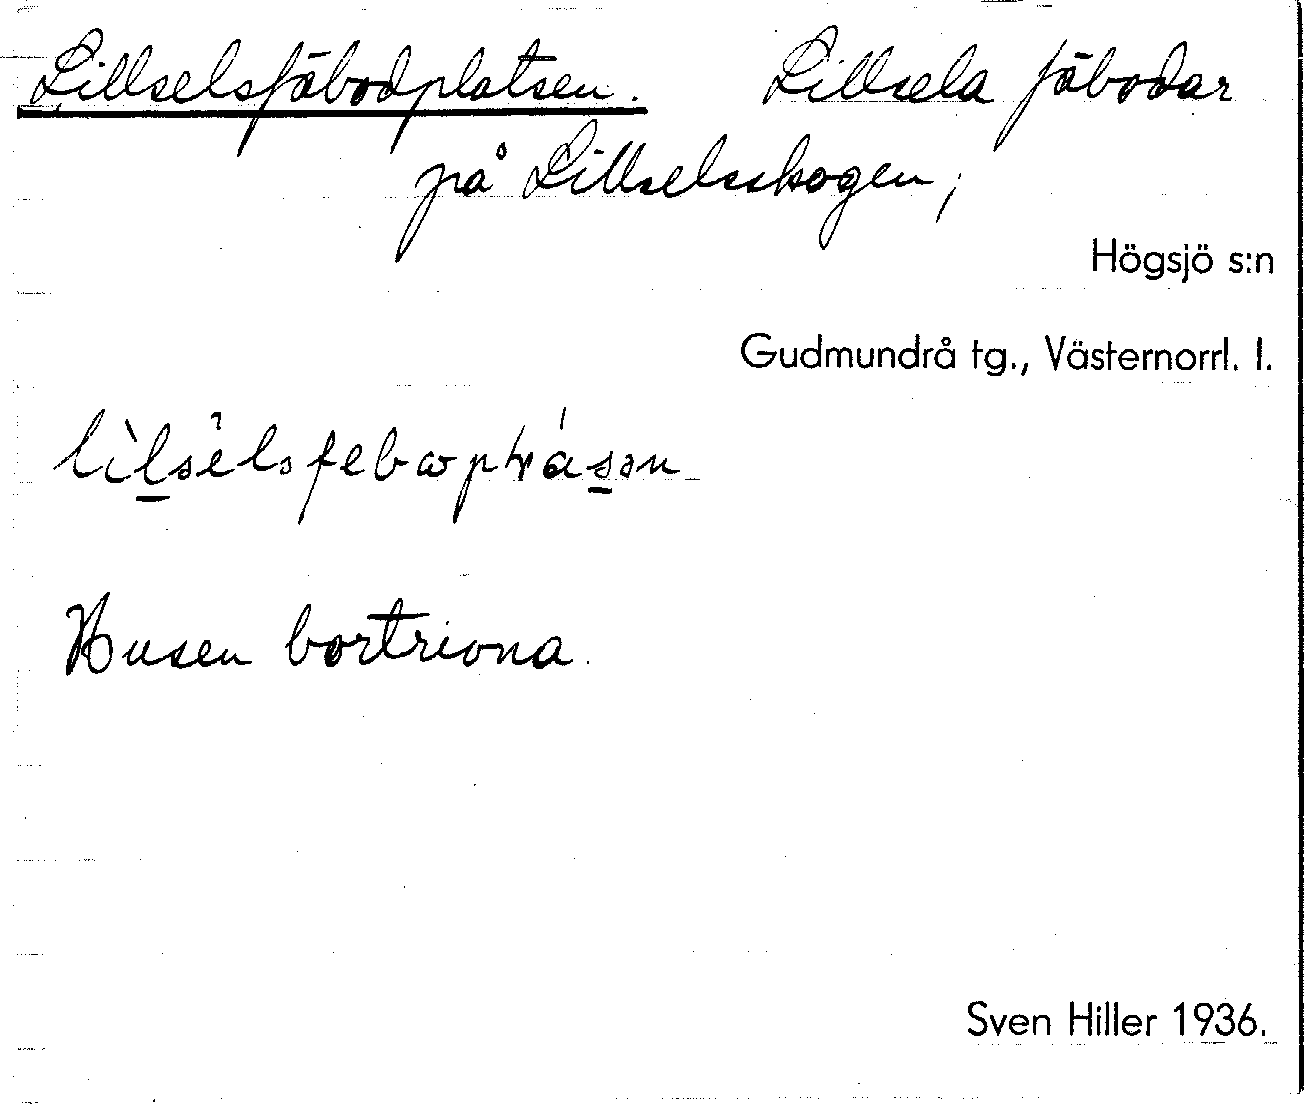 Lillselsfäbodplatsen. Lillsela fäbodar
på Lillselsskogen;
Högsjö s:n
Gudmundrå tg., Västernorrl. l.
Husen bortrivna.
Sven Hiller 1936.